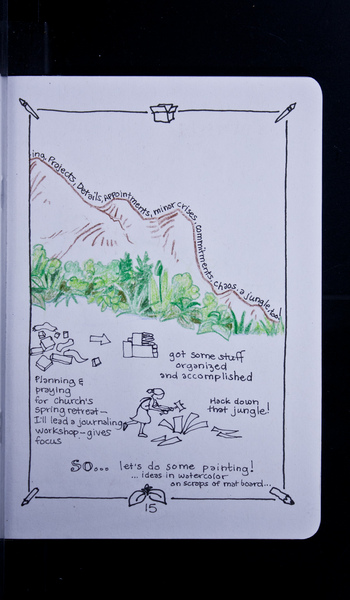 ing Projects, Details, Appointments, minor crises, commitments, chaos, a jungle, too!
got some stuff
organized
and accomplished
Planning &
praying
for church's
Spring retreat—
I'll lead a journaling
workshop—gives
focus
Hack down
that jungle!
SO... let's do some painting!
... ideas in watercolor
on scraps of mat board...
15